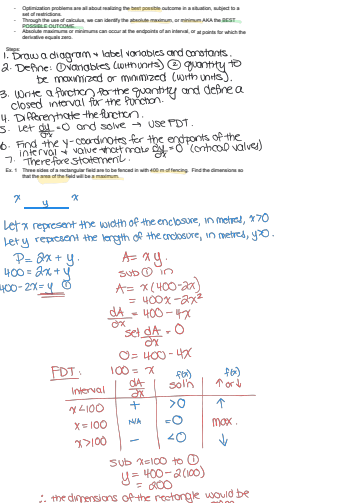 - Optimization problems are all about realizing the best possible outcome in a situation, subject to a
set of restrictions.
- Through the use of calculus, we can identify the absolute maximum, or minimum AKA the BEST
POSSIBLE OUTCOME.
- Absolute maximums or minimums can occur at the endpoints of an interval, or at points for which the
derivative equals zero.
Steps:
1. Draw a diagram & label variables and constants.
2. Define: ① variables (with units) ② quantity to
be maximized or minimized (with units).
3. Write a function for the quantity and define a
closed interval for the function.
4. Differentiate the function.
5. Let dy/dx = 0 and solve → use FDT.
6. Find the y-coordinates for the endpoints of the
interval & value that make dy/dx = 0 (critical values)
7. Therefore statement.
Ex. 1 Three sides of a rectangular field are to be fenced in with 400 m of fencing. Find the dimensions so
that the area of the field will be a maximum.
x y x
Let x represent the width of the enclosure, in metres, x>0
Let y represent the length of the enclosure, in metres, y>0.
P = 2x + y A = xy
400 = 2x + y sub ① in
400 - 2x = y ① A = x(400-2x)
= 400x - 2x²
dA/dx = 400 - 4x
set dA/dx = 0
0 = 400 - 4x
FDT: 100 = x
Interval dA/dx f(x) sol'n f(x) ↑ or ↓
x<100 + >0 ↑
x=100 N/A =0 max.
x>100 - <0 ↓
sub x=100 to ①
y = 400 - 2(100)
= 200
∴ the dimensions of the rectangle would be